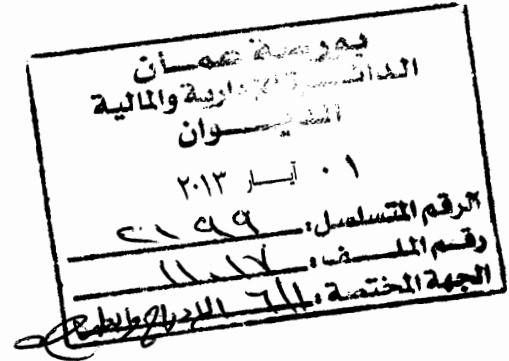 بورصة عمان
الدائرة الإدارية والمالية
الديوان
٠١ أيار ٢٠١٣
الرقم المتسلسل: ٢١٩٩
رقم الملف: ١١٠١٧
الجهة المختصة: الإدراج